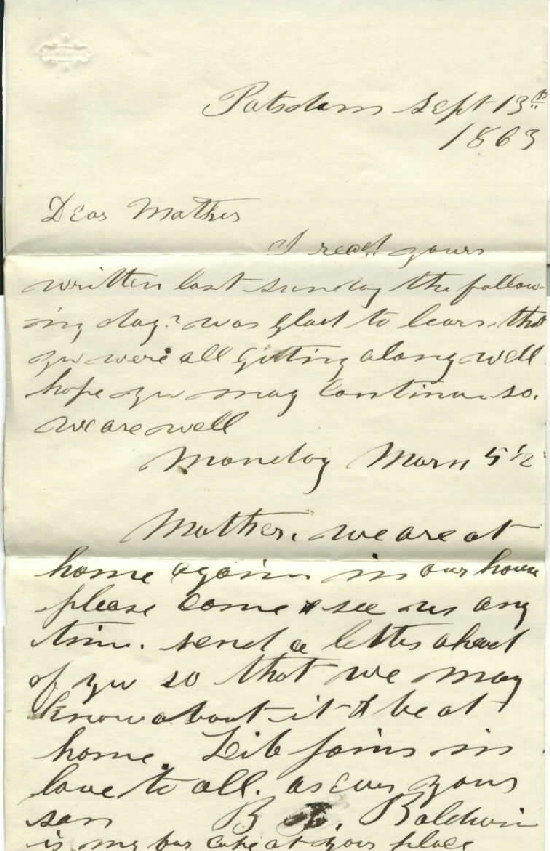 Potsdam Sept 13th
1863
Dear Mother
I recd yours
written last sunday the follow
ing day. was glad to learn that
you were all getting along well
hope you may continue so.
we are well
Monday Morn 5 1/2
Mother. we are at
home again in our house
please come & see us any
time. send a letter ahead
of you so that we may
know about it & be at
home. Lib joins in
love to all. as ever your
son B Baldwin
is my cape at your place